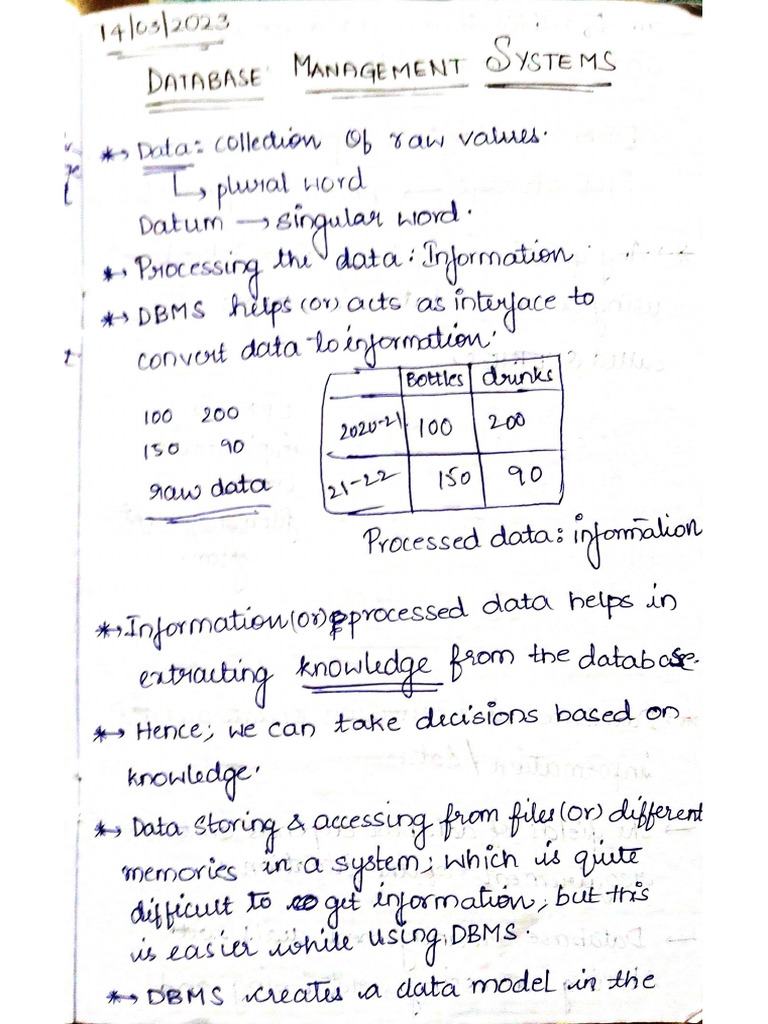 14/03/2023
DATABASE MANAGEMENT SYSTEMS
*→ Data: collection of raw values.
↳ plural word
Datum → singular word.
*→ Processing the data: Information
*→ DBMS helps (or) acts as interface to
convert data to information.
Bottles drinks
100 200
2020-21 100 200
150 90
21-22 150 90
raw data
Processed data: information
*→ Information (or) processed data helps in
extracting knowledge from the database.
*→ Hence; we can take decisions based on
knowledge.
*→ Data storing & accessing from files (or) different
memories in a system; which is quite
difficult to get information, but this
is easier while using DBMS.
*→ DBMS creates a data model in the